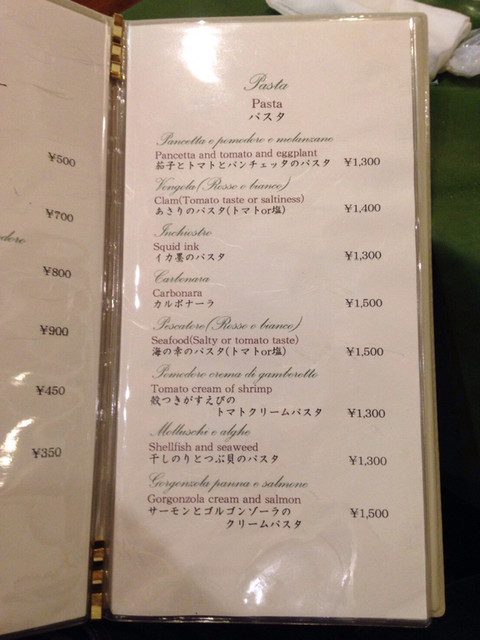 ¥500
¥700
¥800
¥900
¥450
¥350
Pasta
Pasta
パスタ
Pancetta e pomodoro e melanzane
Pancetta and tomato and eggplant
茄子とトマトとパンチェッタのパスタ ¥1,300
Vongola(Rosso o bianco)
Clam(Tomato taste or saltiness)
あさりのパスタ(トマトor塩) ¥1,400
Inchiostro
Squid ink
イカ墨のパスタ ¥1,300
Carbonara
Carbonara
カルボナーラ ¥1,500
Pescatore(Rosso o bianco)
Seafood(Salty or tomato taste)
海の幸のパスタ(トマトor塩) ¥1,500
Pomodoro crema di gamberetto
Tomato cream of shrimp
殻つきがすえびの
トマトクリームパスタ ¥1,300
Molluschi e alghe
Shellfish and seaweed
干しのりとつぶ貝のパスタ ¥1,300
Gorgonzola panna e salmone
Gorgonzola cream and salmon
サーモンとゴルゴンゾーラの
クリームパスタ ¥1,500